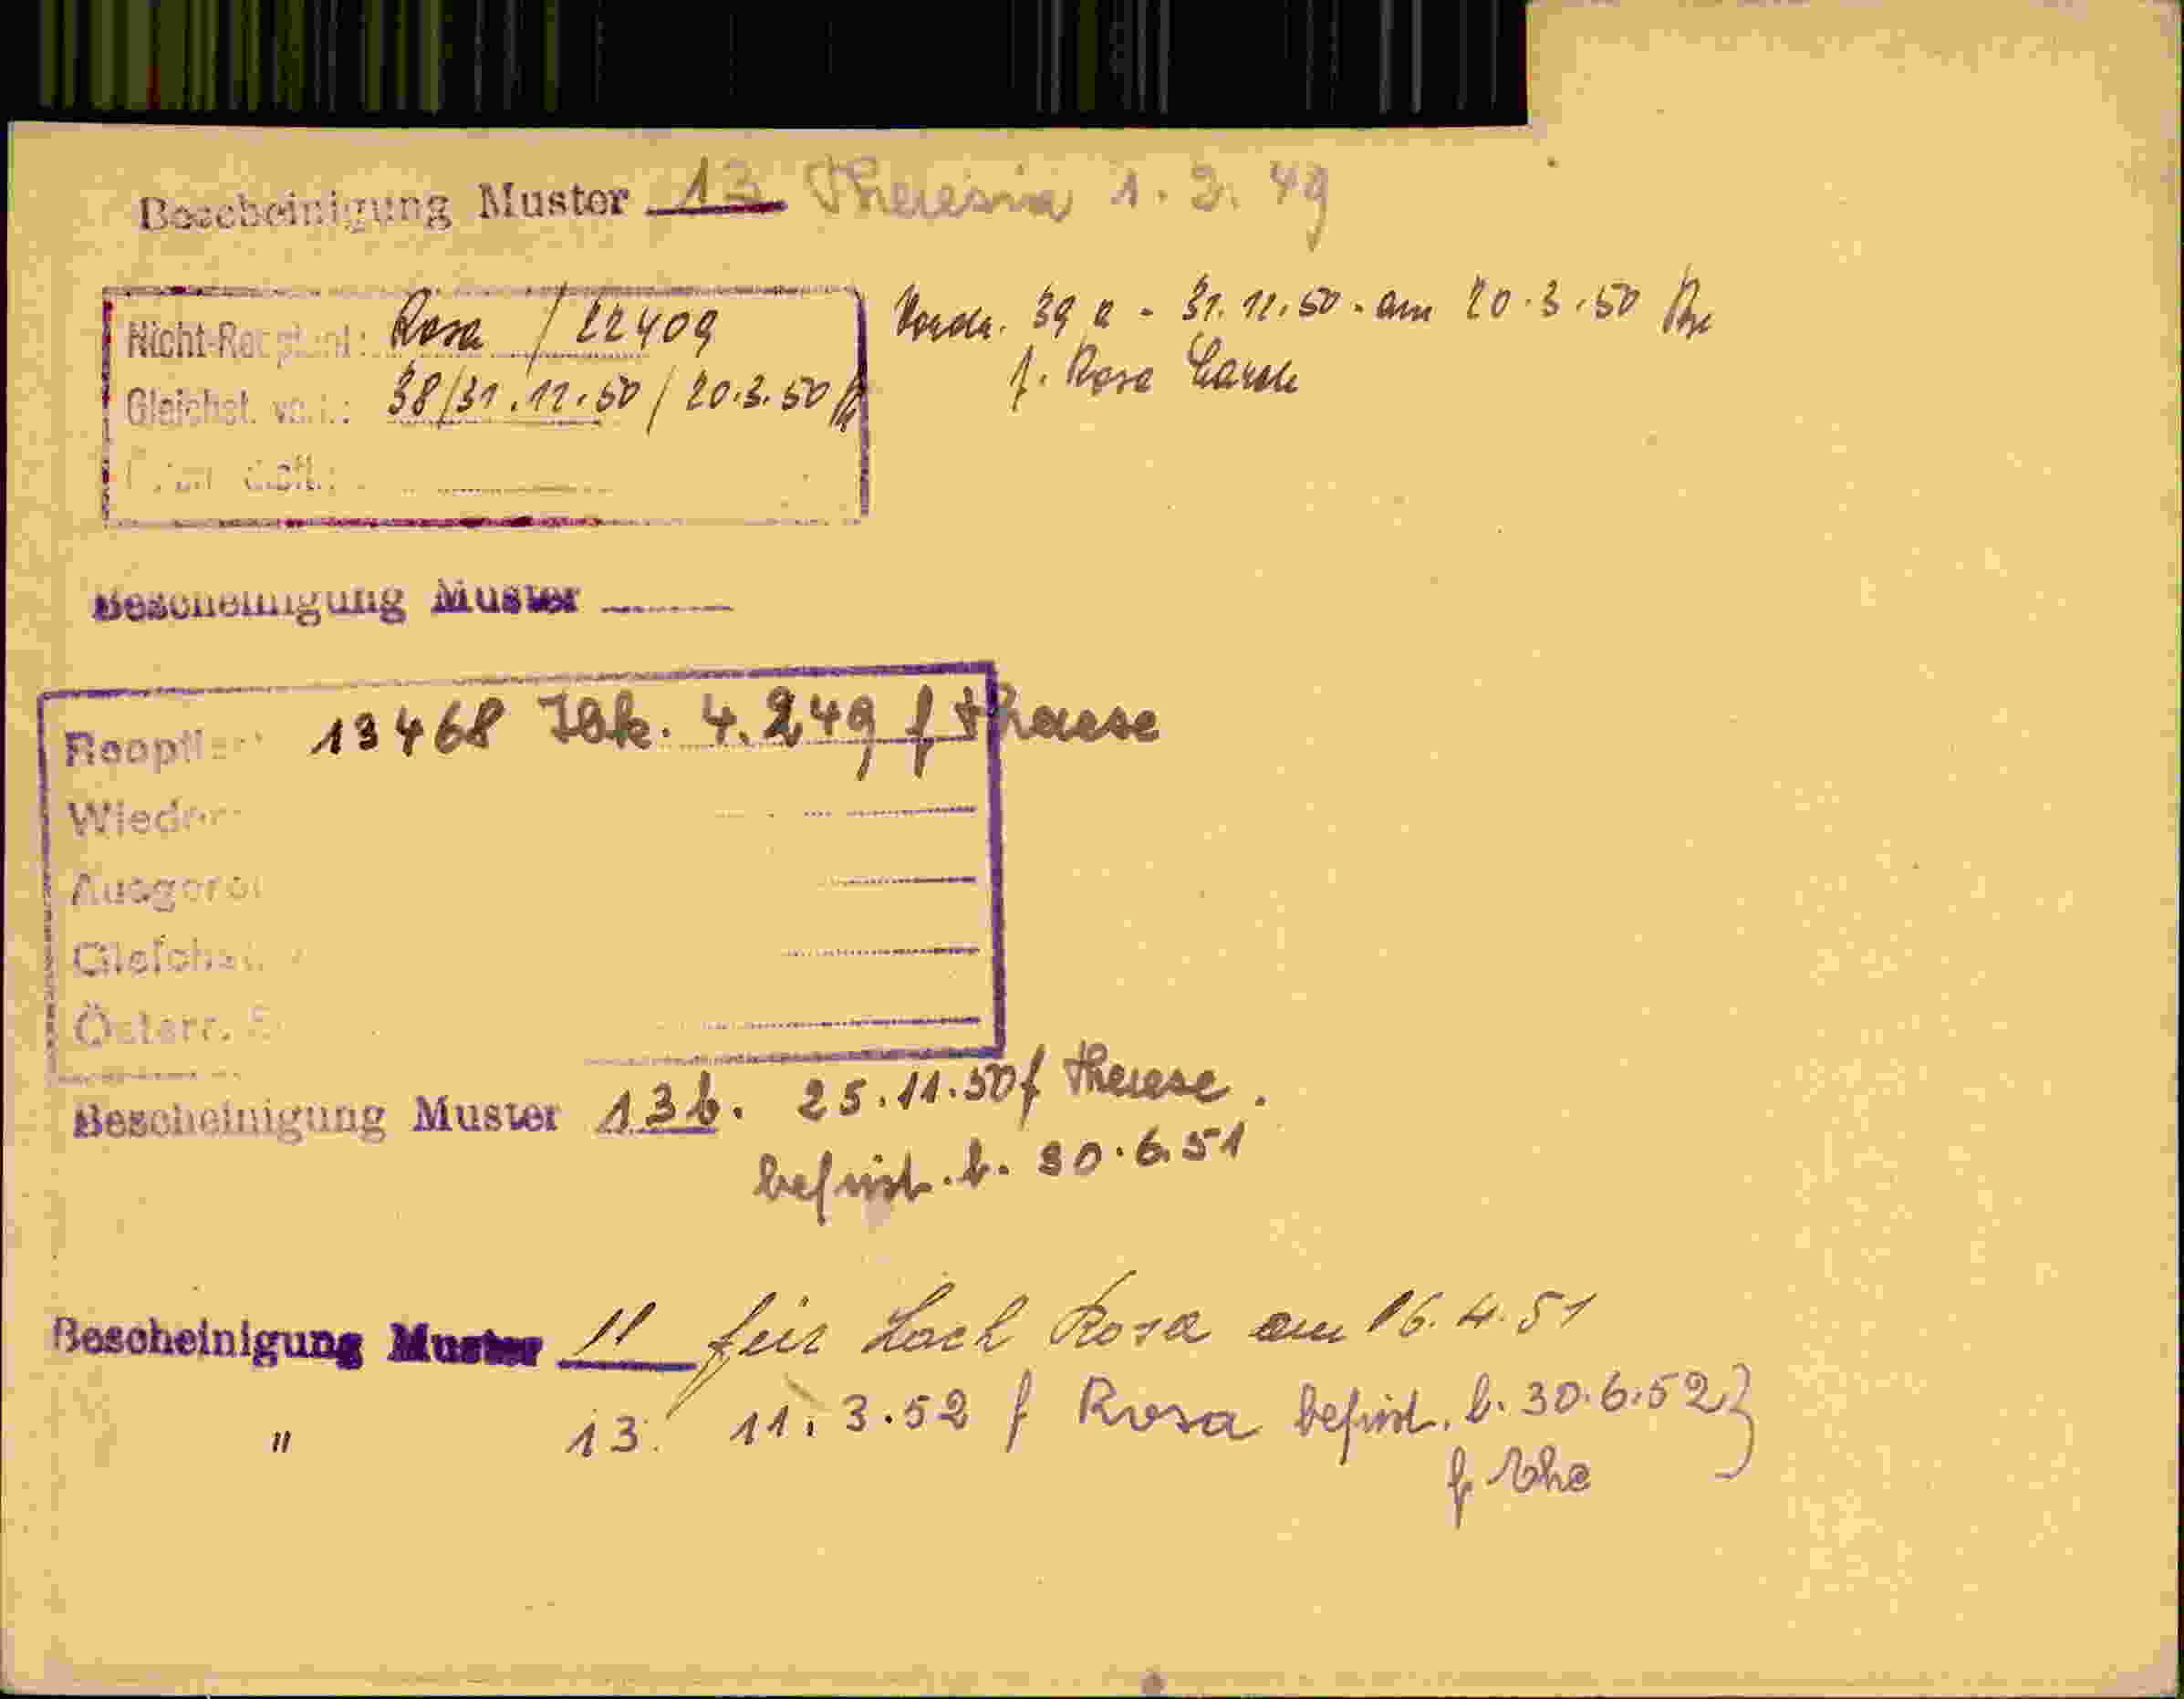 Bescheinigung Muster 13 Theresia 1. 2. 49
Nicht-Reoptant: Rosa / 22409
Vordr. 39 a - 31.12.50 - am 20.3.50
Gleichst. 38/31.12.50 / 20.3.50
f. Rosa
Bescheinigung Muster
Reoptiert 13468 Ibk. 4.249 f Therese
Wieder
Gleichst.
Österr.
Bescheinigung Muster 13b. 25.11.50 f Therese.
befrist. b. 30.6.51
Bescheinigung Muster 11 für Lach Rosa am 16.4.51
" 13. 11.3.52 f Rosa befrist. b. 30.6.52}